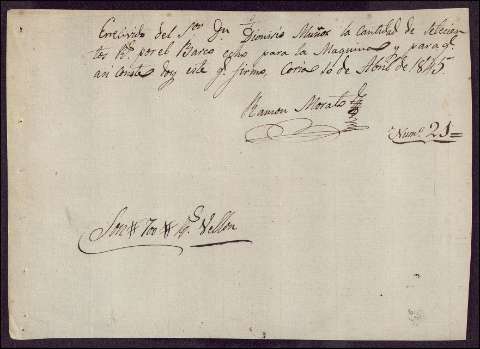 Erecivido del Sor Dn Dionisio Muños la cantidad de setecien-
tos Rs por el Barco echo para la Maquina y para q.
asi conste doy este q. firmo. Coria 10 de Abril de 1845.
Ramon Morat
Numo 21=
Son # 700 # Rs Vellon